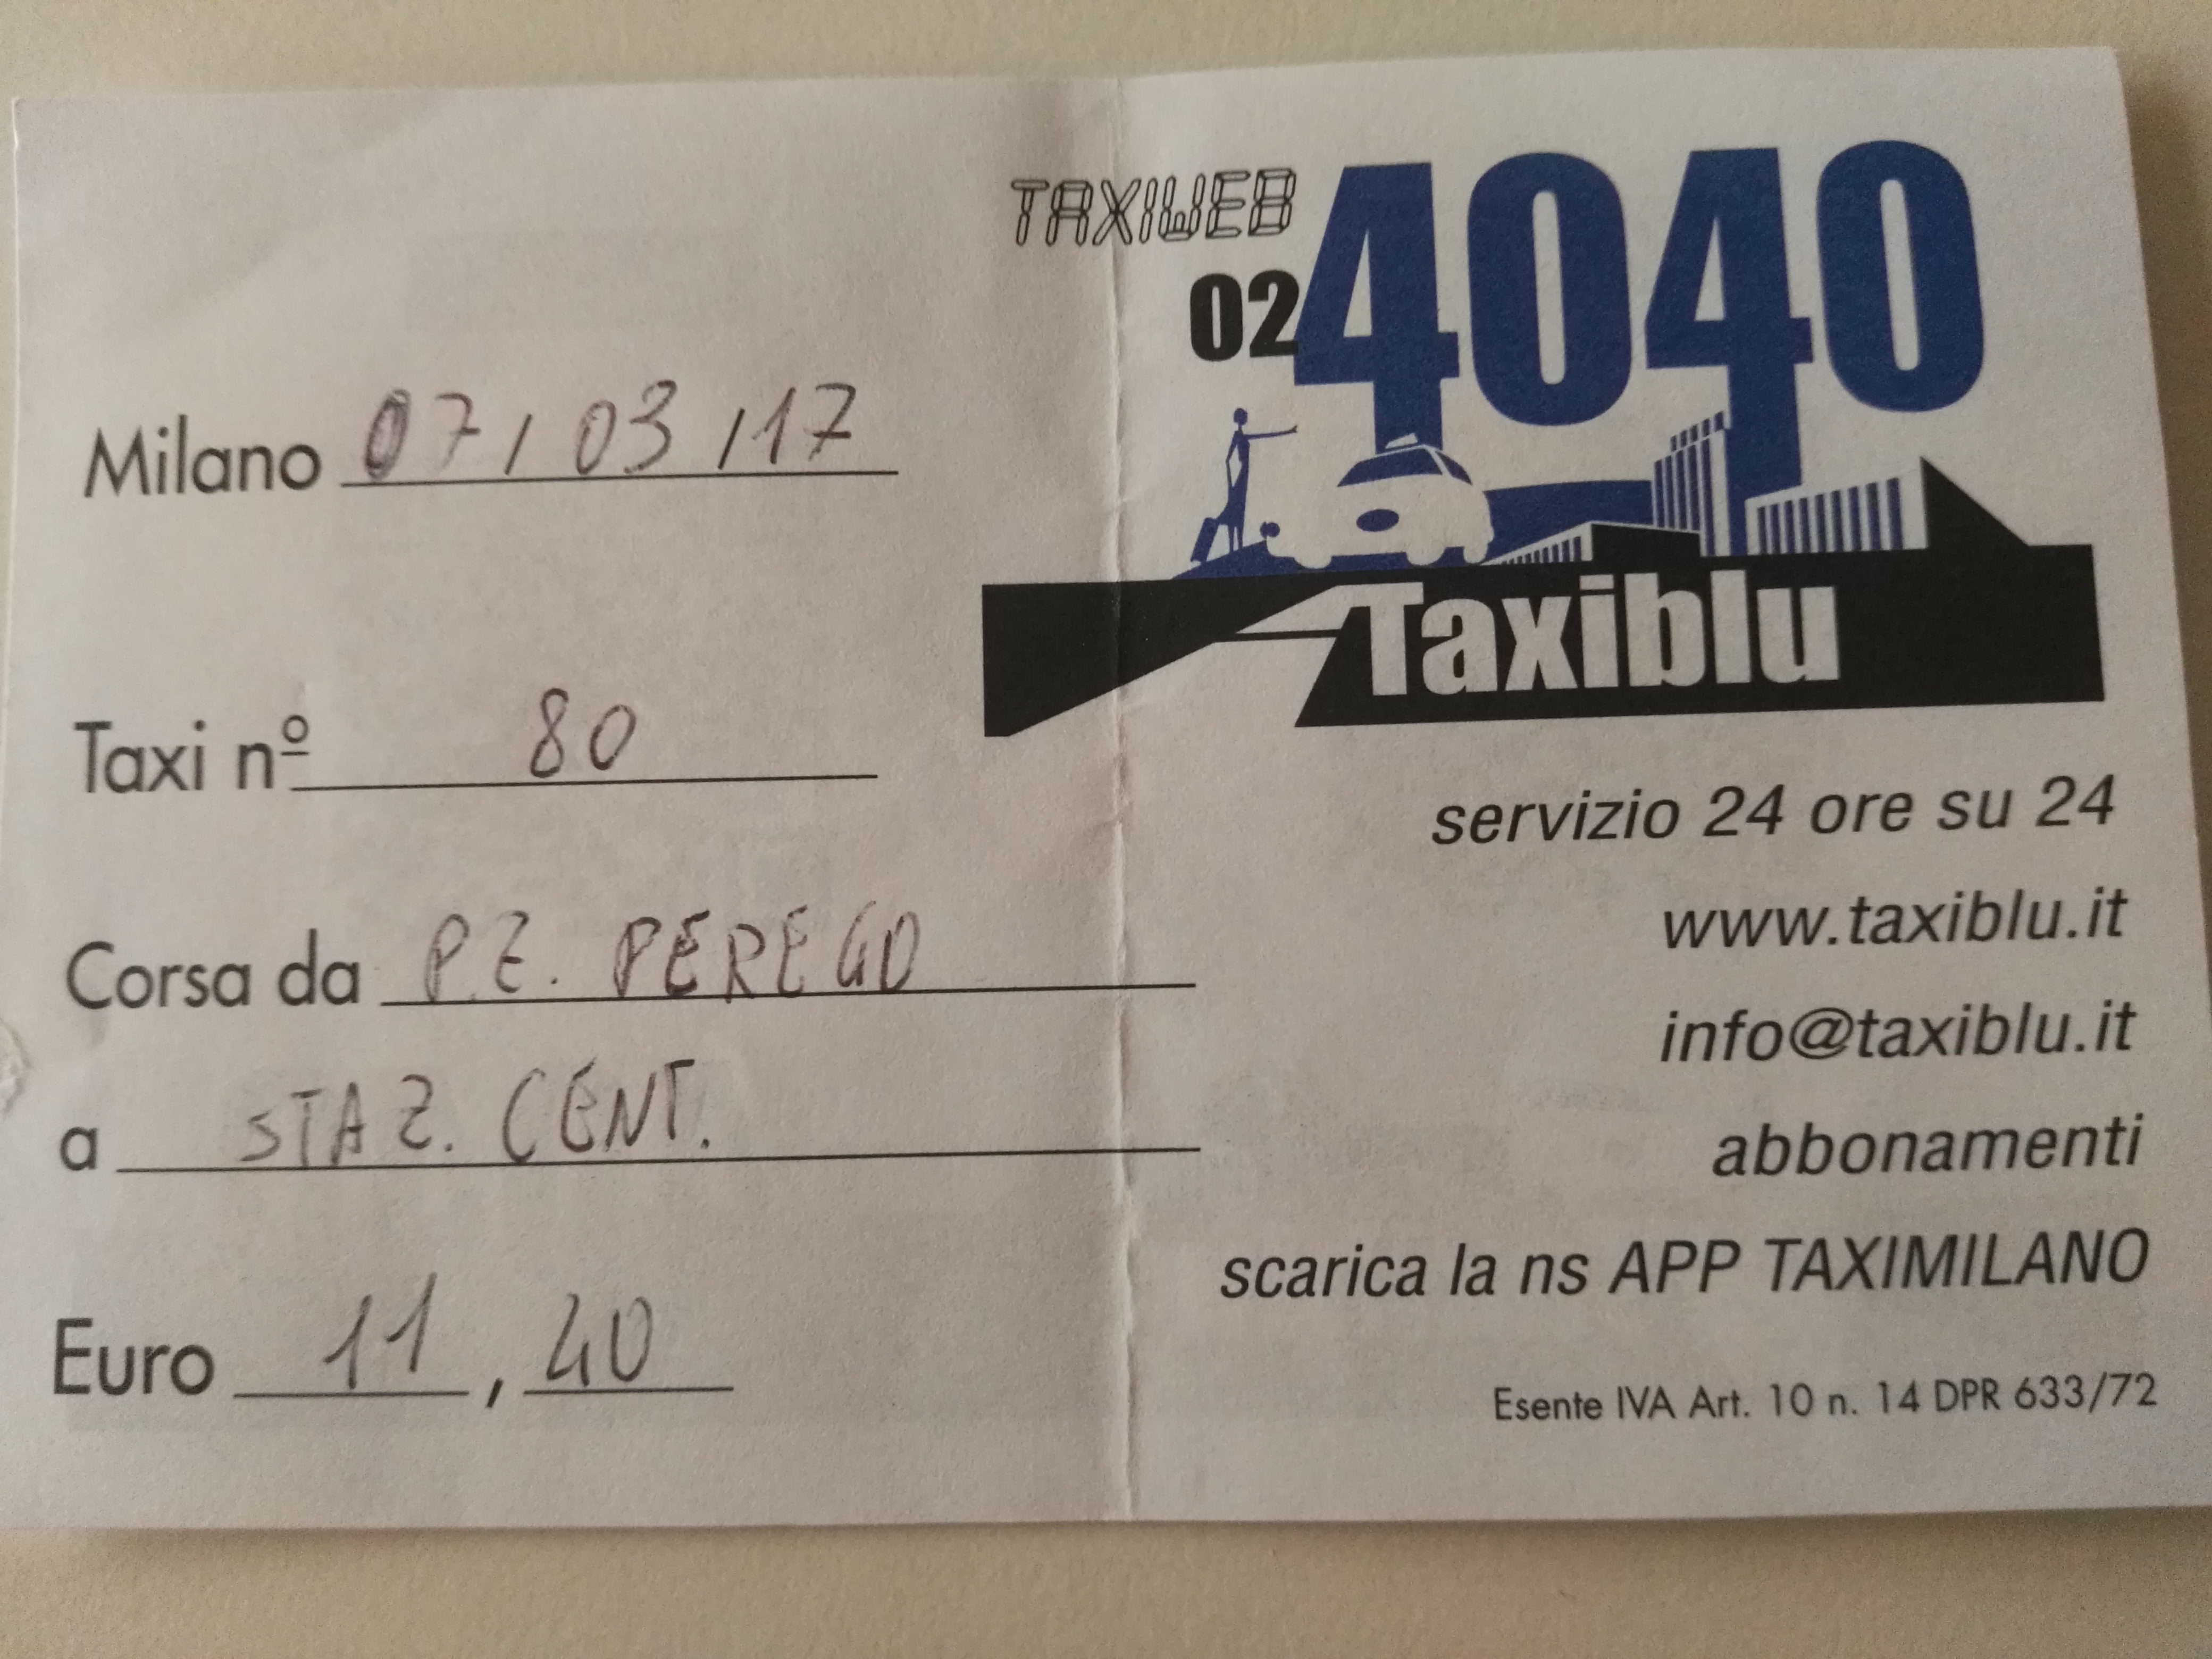 Milano 07/03/17
Taxi nº 80
Corsa da PZ. PEREGO
a STAZ. CENT.
Euro 11,40
TAXIWEB
02 4040
Taxiblu
servizio 24 ore su 24
www.taxiblu.it
info@taxiblu.it
abbonamenti
scarica la ns APP TAXIMILANO
Esente IVA Art. 10 n. 14 DPR 633/72